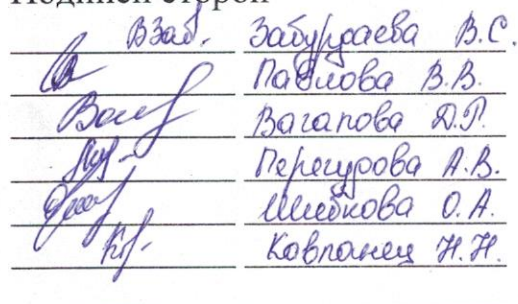 Подписи сторон
ВЗаб. Забурдаева В.С.
Павлова В.В.
Ваг Вагапова Д.Р.
Пер- Перегудова А.В.
Шибкова О.А.
Ковпанец Н.Н.